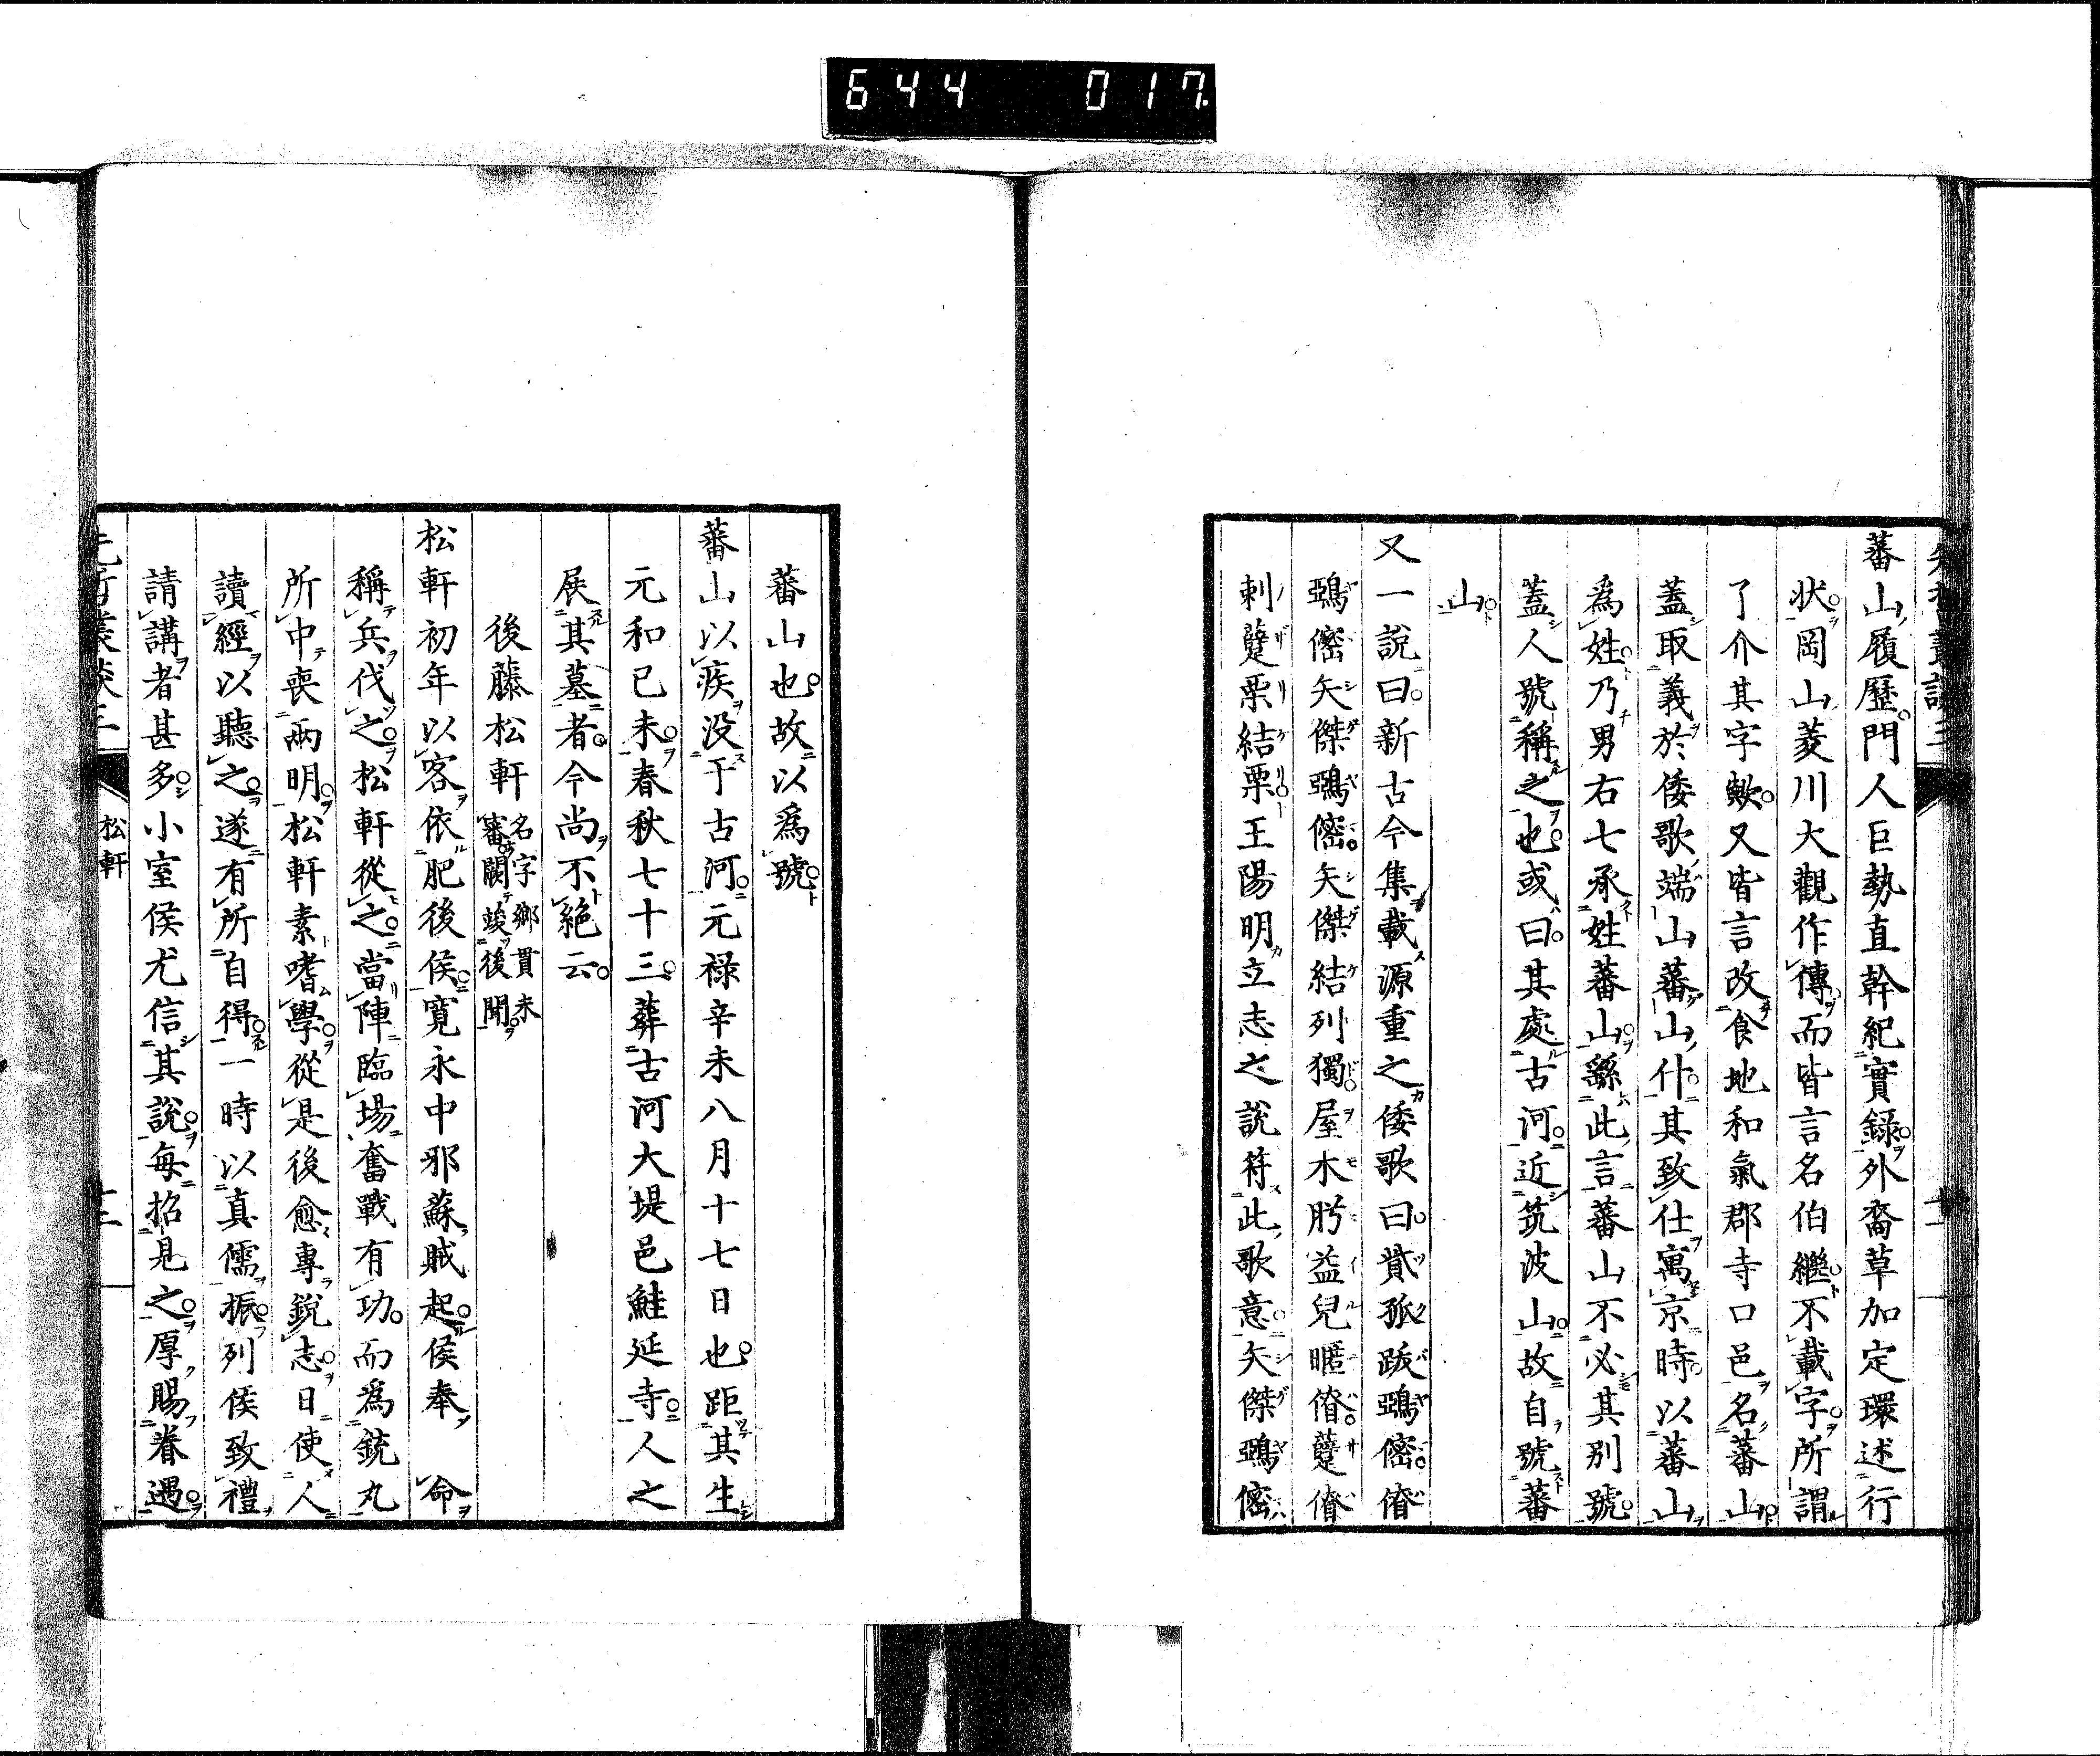 644 017
蕃山履歷門人巨勢直幹紀實録外裔草加定環述行
状岡山菱川大觀作傳而皆言名伯繼不載字所謂
了介其字歟又皆言改食地和氣郡寺口邑名蕃山
蓋取義於倭歌端山蕃山什其致仕寓京時以蕃山
為姓乃男右七承姓蕃山繇此言蕃山不必其別號
蓋人號稱之也或曰其處古河近筑波山故自號蕃
山
又一說曰新古今集載源重之倭歌曰貲孤跋鵶傛
鵶傛矢傑鵶傛矢傑結列獨屋木肹益兒暱
刺蘷栗結栗王陽明立志之說符此歌意矢傑鵶傛
蕃山也故以為號
蕃山以疾没于古河元禄辛未八月十七日也距其生
元和己未春秋七十三葬古河大堤邑鮭延寺人之
展其墓者今尚不絶云
後藤松軒 名字鄉貫未審闕竣後聞
松軒初年以客依肥後侯寛永中邪蘇賊起侯奉 命
稱兵伐之松軒從之當陣臨場奮戰有功而為銃丸
所中喪兩明松軒素嗜學從是後愈專銳志日使人
讀經以聽之遂有所自得一時以真儒振列侯致禮
請講者甚多小室侯尤信其說每招見之厚賜眷遇
松軒